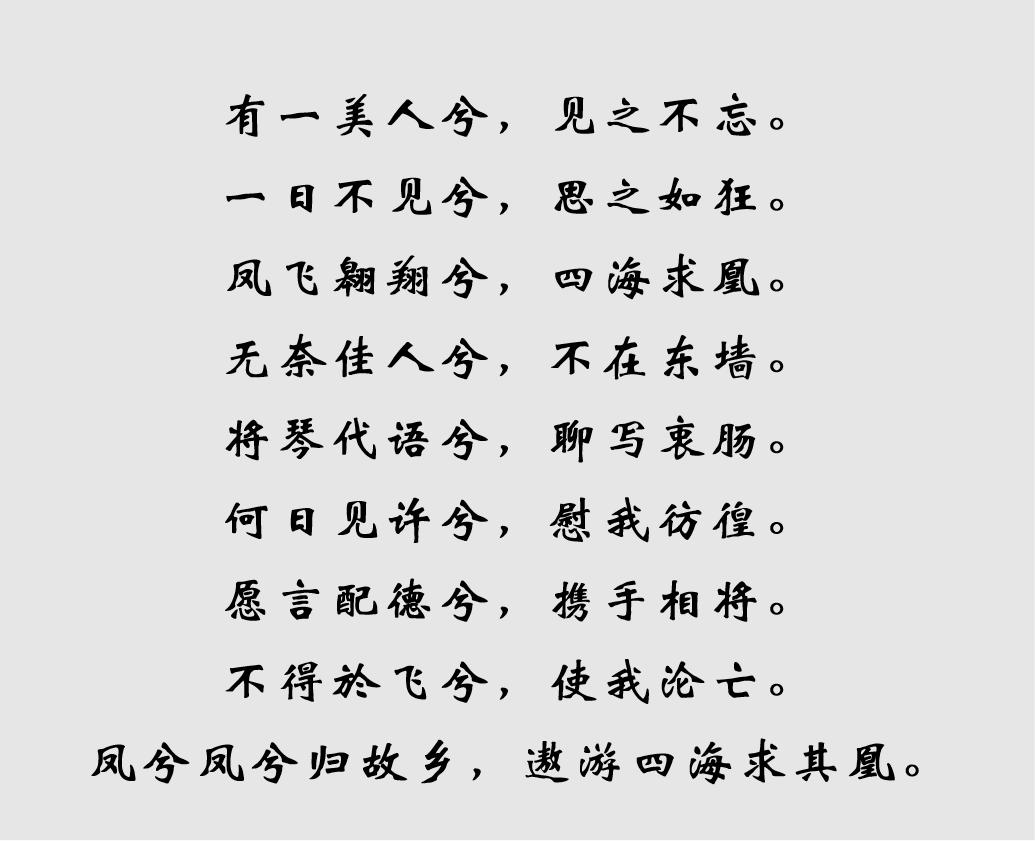 有一美人兮，见之不忘。
一日不见兮，思之如狂。
凤飞翱翔兮，四海求凰。
无奈佳人兮，不在东墙。
将琴代语兮，聊写衷肠。
何日见许兮，慰我彷徨。
愿言配德兮，携手相将。
不得於飞兮，使我沦亡。
凤兮凤兮归故乡，遨游四海求其凰。